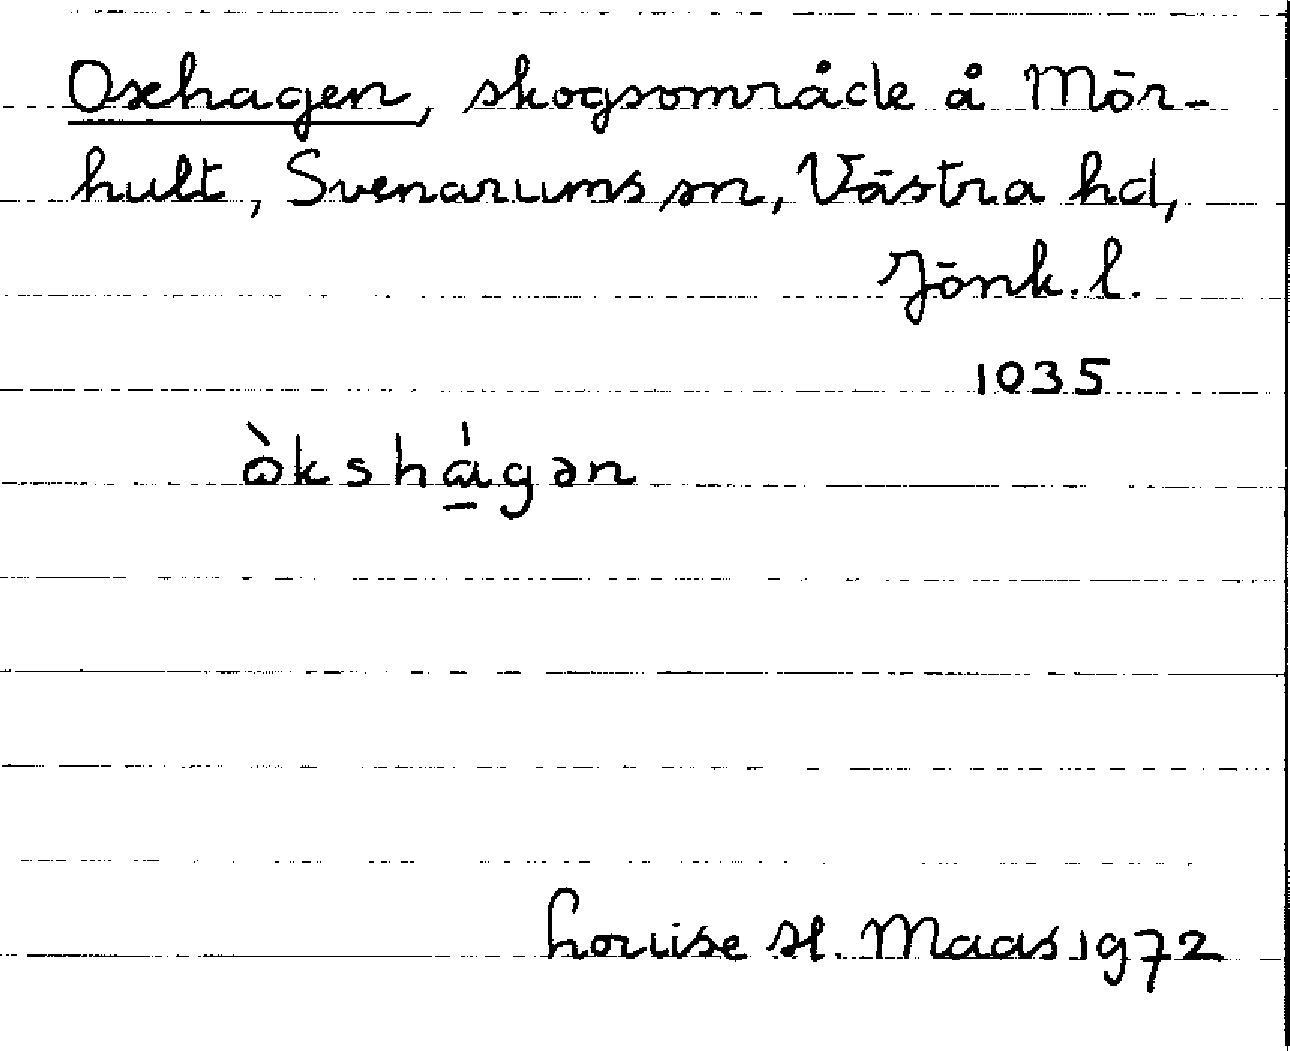 Oxhagen, skogsområde å Mör-
hult, Svenarums sn, Västra hd,
Jönk. l.
1035
ɷ̀kshɑ̠́gən
Louise H. Maas 1972